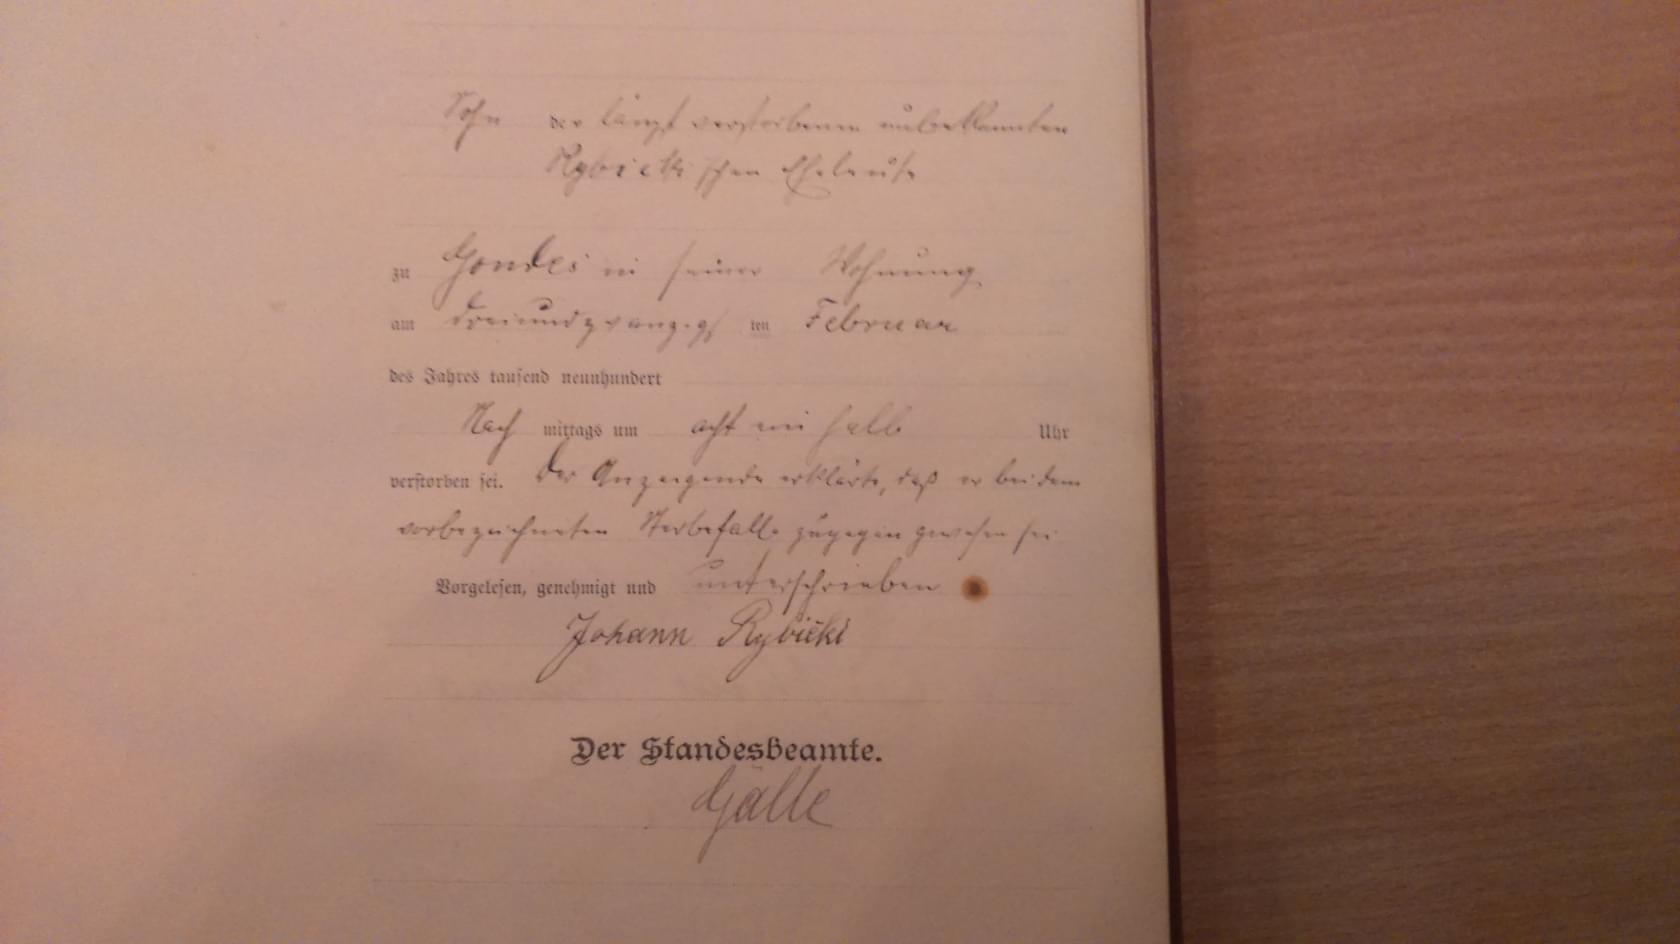 Sohn der längst verstorbenen unbekannten
Rybicki'schen Eheleute
zu Gondes in seiner Wohnung
am dreiundzwanzigs ten Februar
des Jahres tausend neunhundert
Nach mittags um acht ein halb Uhr
verstorben sei. Der Anzeigende erklärte, daß er bei dem
vorbezeichneten Sterbefalle zugegen gewesen sei
Vorgelesen, genehmigt und unterschrieben
Johann Rybicki
Der Standesbeamte.
Gälle